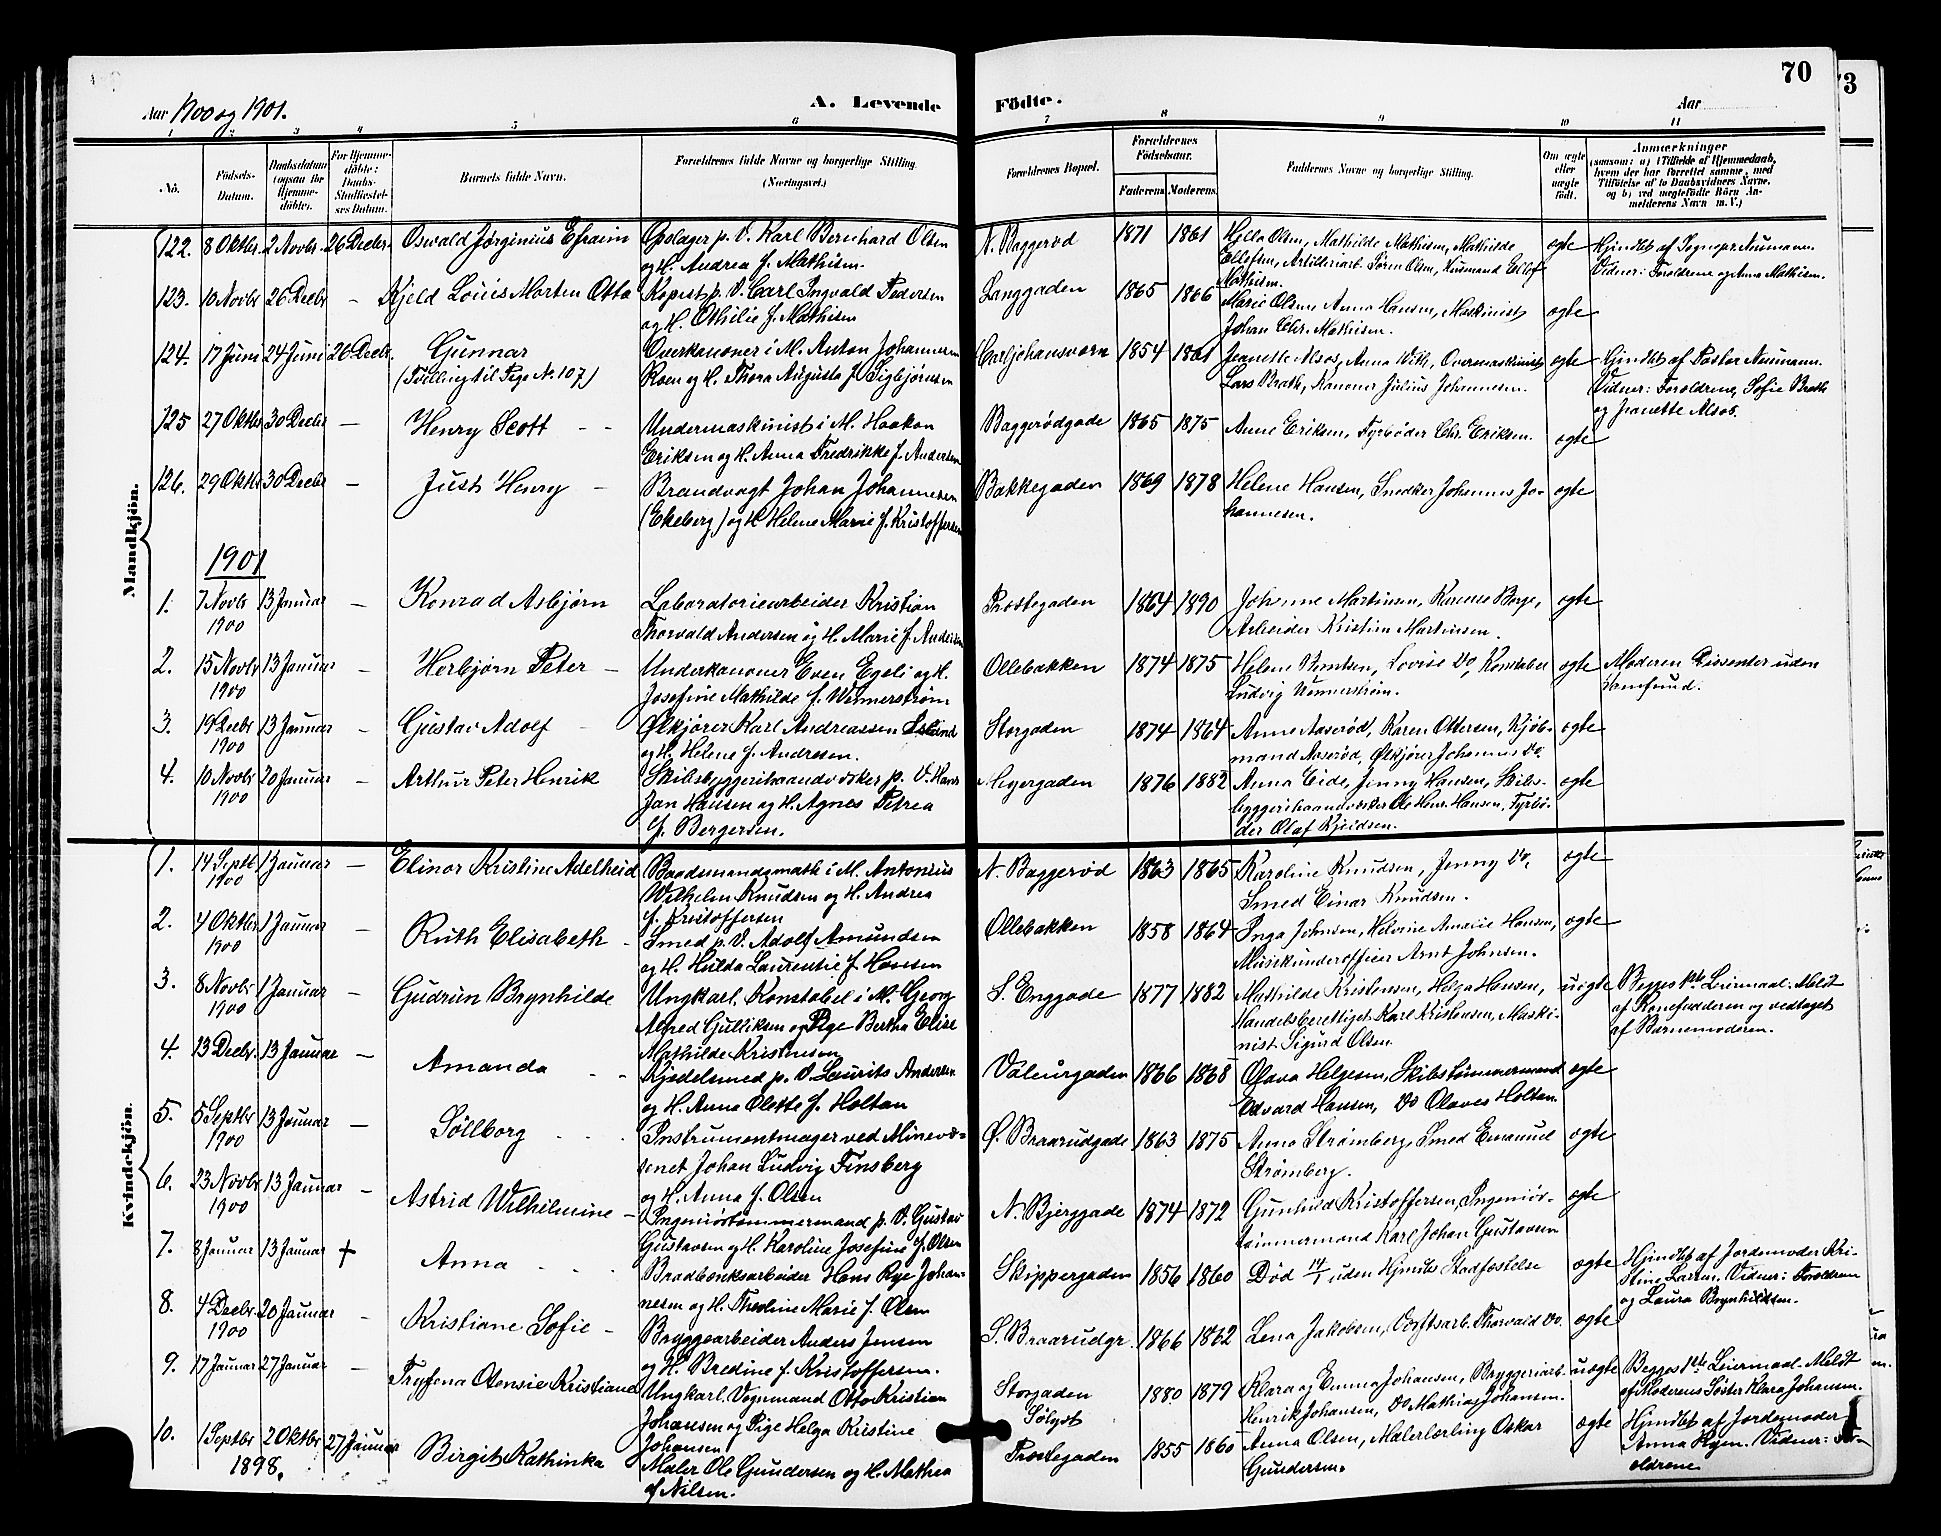 70
73
Aar 1900 og 1901.
A. Levende Födte.
Aar
1 2 3 4 5 6 7 8 9 10 11
No.
Födsels-Datum.
Daabsdatum (ogsaa for Hjemme-döbte).
For Hjemme-döbte: Daabs-Stadfæstel-ses Datum.
Barnets fulde Navn.
Forældrenes fulde Navne og borgerlige Stilling. (Næringsvei.)
Forældrenes Bopæl.
Forældrenes Födselsaar.
Faderens. Moderens.
Faddernes Navne og borgerlige Stilling.
Om ægte eller uægte födt.
Anmærkninger
(saasom: a) i Tilfælde af Hjemmedaab, hvem der har forrettet samme, med Tilföielse af to Daabsvidners Navne, og b) ved uegtefödte Börn An-melderens Navn m. V.)
Mandkjön.
122. 8 Oktbr. 2 Novbr. 26 Decbr. Oswald Jørginius Efraim
Opslager p. V. Karl Bernhard Olsen
og H. Andrea f. Mathisen.
N. Baggerød 1871 1861
Hjella Olsen, Mathilde Mathisen, Mathilde
Ellefsen, Artilleriarb. Søren Olsen, Husmand Ellef
Mathisen.
ægte
Hjmdbt af Sognepr. Neumann.
Vidner: Foræeldrene og Anna Mathisen.
123. 10 Novbr 26 Decbr – Kjeld Louis Morten Otto
Kopist p. V. Carl Ingvald Pedersen
og H. Othilie f. Mathisen
Langgaden 1865 1866
Marie Olsen, Anna Hansen, Maskinist
Johan Chr. Mathisen.
ægte
124. 17 Juni 24 Juni 26 Decbr. Gunnar
(Tvilling til Pige N. 107)
Overkanoner i M. Anton Johannesen
Roen og H. Thora Augusta f. Sigbjørnsen
Carljohansværn 1854 1861
Jeanette Alsos, Anna With, Overmaskinist
Lars Brath, Kanoner Julius Johannesen.
ægte
Hjmdbt af Pastor Neumann.
Vidner: Forældrene, Sofie Brath
og Jeanette Alsos.
125 27 Oktbr 30 Decbr – Henry Scott
Undermaskinist i M. Haakon
Eriksen og H. Anna Fredrikke f. Andersen
Baggerødgade 1865 1875
Anne Eriksen, Fyrbøder Chr. Eriksen.
ægte
126. 29 Oktbr 30 Decbr – Just Henry
Brandvagt Johan Johannesen
(Ekeberg) og H. Helene Marie f. Kristoffersen
Bakkegaden 1869 1878
Helene Hansen, Snedker Johannes Jo-
hannesen.
ægte
1901
1. 7 Novbr 1900 13 Januar – Konrad Asbjørn
Laboratoriearbeider Kristian
Thorvald Andersen og H. Marie f. Andersen
Prostegaden 1864 1890
Johanne Martinsen, Karense Borge,
Arbeider Kristian Martinsen.
ægte
2. 15 Novbr 1900 13 Januar – Herbjørn Peter
Underkanoner Even Egeli og H.
Josefine Mathilde f. Wennerstrøm
Ollebakken 1874 1875
Helene Berntsen, Lovise Do, Konstabel
Ludvig Wennerstrøm.
ægte
Moderen Dissenter uden
Samfund.
3. 19 Decbr 1900 13 Januar – Gustav Adolf
Ølkjører Karl Andreassen
og H. Helene f. Andresen.
Storgaden 1874 1864
Anne Aaserød, Karen Ottersen, Kjøb-
mand Aaserød, Ølkjører Johannes Do.
ægte
4. 10 Novbr 1900 20 Januar – Arthur Peter Henrik
Skibsbyggerihaandværker p. V. Hans
Jan Hansen og H. Agnes Petrea
f. Bergersen.
Meyergaden 1876 1882
Anna Eide, Jenny Hansen, Skibs-
byggerihaandværker Ole Henr. Hansen, Fyrbø-
der Olaf Kjeldsen.
ægte
Kvindekjön.
1. 14 Septbr 1900 1 Januar – Elinor Kristine Adelheid
Baadsmandsmath i M. Antonius
Wilhelm Knudsen og H. Andrea
f. Kristoffersen
N. Baggerød 1863 1865
Karoline Knudsen, Jenny Do,
Smed Einar Knudsen.
ægte
2. 4 Oktbr. 1900 1 Januar – Ruth Elisabeth
Smed p. V. Adolf Amundsen
og H. Hulda Laurentie f. Hansen
Ollebakken 1858 1864
Inga Johnsen, Helvine Amalie Hansen,
Musikunderofficer Arnt Johnsen.
ægte
3. 8 Novbr 1900 1 Januar – Gudrun Brynhilde
Ungkarl, Konstabel i M. Georg
Alfred Gulliksen og Pige Bertha Elise
Mathilde Kristensen
S. Enggade 1877 1882
Mathilde Kristensen, Helga Hansen,
Handelsberettiget Karl Kristensen, Maski-
nist Sigurd Olsen.
uægte
Begges 1ste Leiermaal. Meldt
af Konefadderen og vedtaget
af Barnemoderen.
4. 13 Decbr. 13 Januar – Amanda
Kjedelsmed p. V. Laurits Andersen
og H. Anna Olette f. Holtan
Valeurgaden 1866 1868
Olava Helgesen, Skibstømmermand
Edvard Hansen, Do Olaves Holtan
ægte
5. 5 Septbr 1900 13 Januar – Søllborg
Instrumentmager ved Minevæ-
senet Johan Ludvig Finsberg
og H. Anna f. Olsen
Ø. Braarudgade 1863 1875
Anna Strømberg, Smed Emanuel
Strømberg.
ægte
6. 23 Novbr 1900 13 Januar – Astrid Wilhelmine
Ingeniørtømmermand p. V. Gustav
Gustavsen og H. Karoline Josefine f. Olsen
N. Bjerggade 1874 1872
Gunhild Kristoffersen, Ingeniør-
tømmermand Karl Johan Gustavsen
ægte
7. 8 Januar 13 Januar + Anna
Bradbænksarbeider Hans Rye Johan-
nesen og H. Theoline Marie f. Olsen
Skippergaden 1856 1860
Død 14/1 uden Kirkens Stadfæstelse
ægte
Hjmdbt af Jordemoder Kri-
stine Larsen. Vidner: Forældrene
og Laura Brynhildsen.
8. 4 Decbr. 1900 20 Januar – Kristiane Sofie
Bryggearbeider Anders Jensen
og H. Bredine f. Kristoffersen.
S. Braarudgr. 1866 1862
Lena Jakobsen, Værftsarb. Thorvald Do.
ægte
9. 17 Januar 27 Januar – Tryfena Olensie Kristiane
Ungkarl, Vognmand Otto Kristian
Johansen og Pige Helga Kristine
Johansen
Storgaden
Sølyst
1880 1879
Klara og Emma Johansen, Bryggeriarb.
Henrik Johansen, Do Mathias Johansen.
uægte
Begges 1ste Leiermaal. Meldt
af Moderens Søster Klara Johansen.
10. 1 Septbr 2 Oktbr 1898. 27 Januar Birgit Kathinka
Maler Ole Gundersen og H. Mathea
f. Nilsen.
Prostegaden 1855 1860
Anna Olsen, Malerlærling Oskar
Gundersen.
ægte
Hjmdbt af Jordemoder
Anna Hyen. Vidner: For-
ældrene